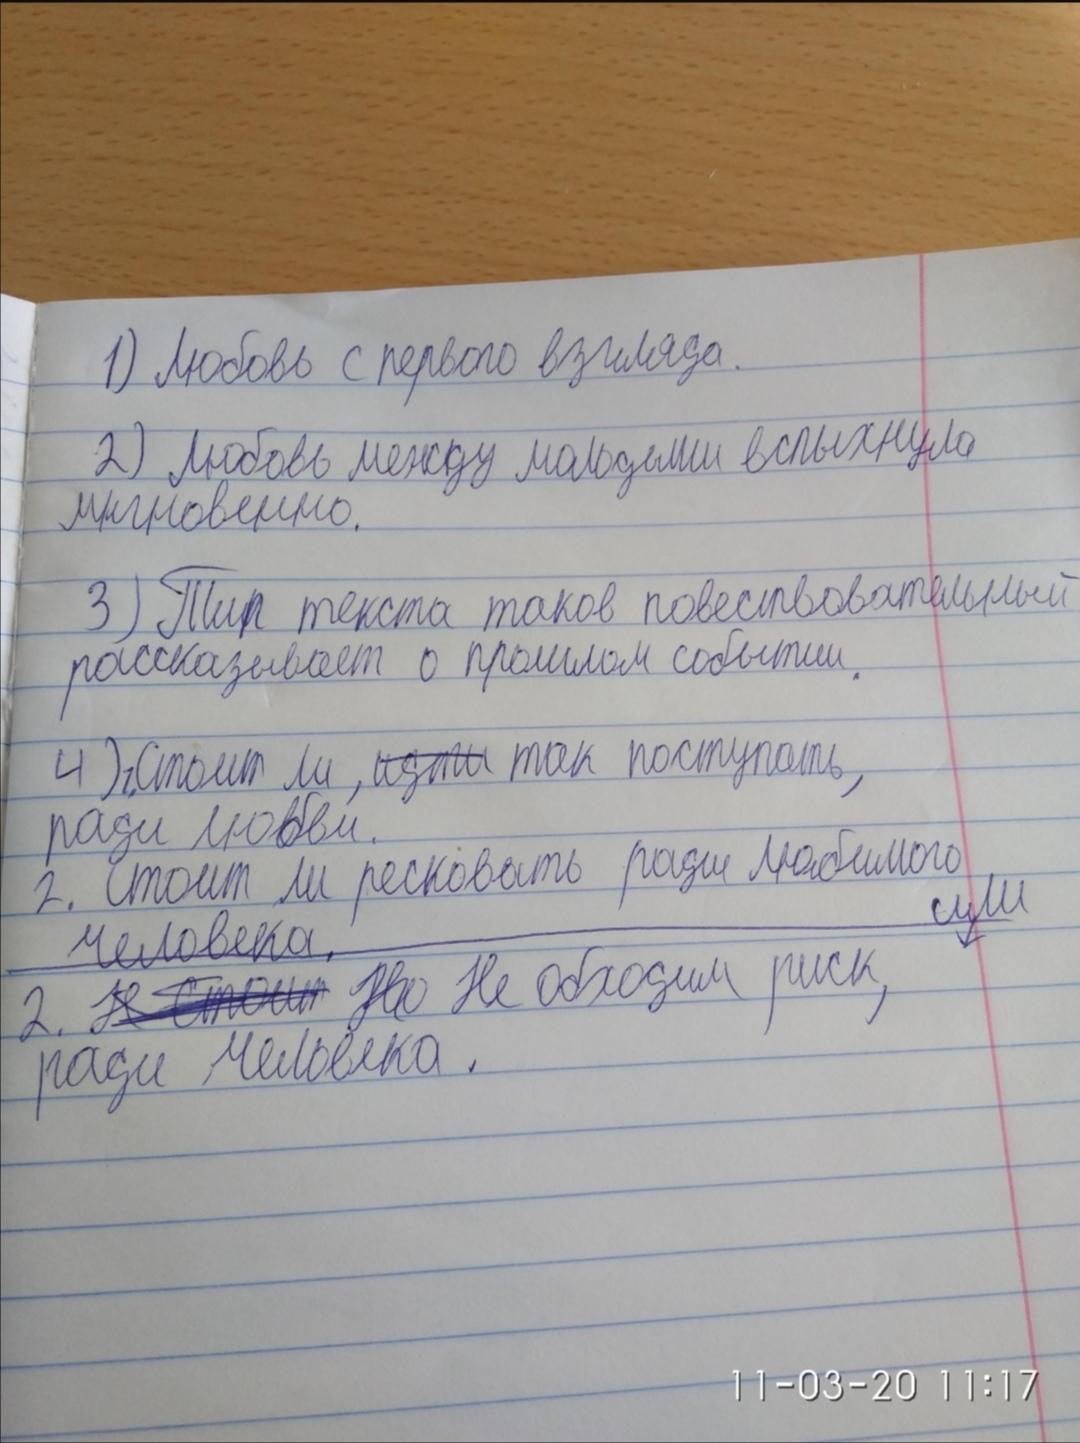 1) Любовь с первого взгляда.
2) Любовь между молодыми вспыхнула
мгновенно.
3) Тип текста таков повествовательный
рассказывает о прошлом событии.
4) 1. Стоит ли, идти так поступать,
ради любви.
2. Стоит ли ресковать ради любимого
человека. или
2. Не стоит Не обходим риск,
ради человека.
11-03-20 11:17